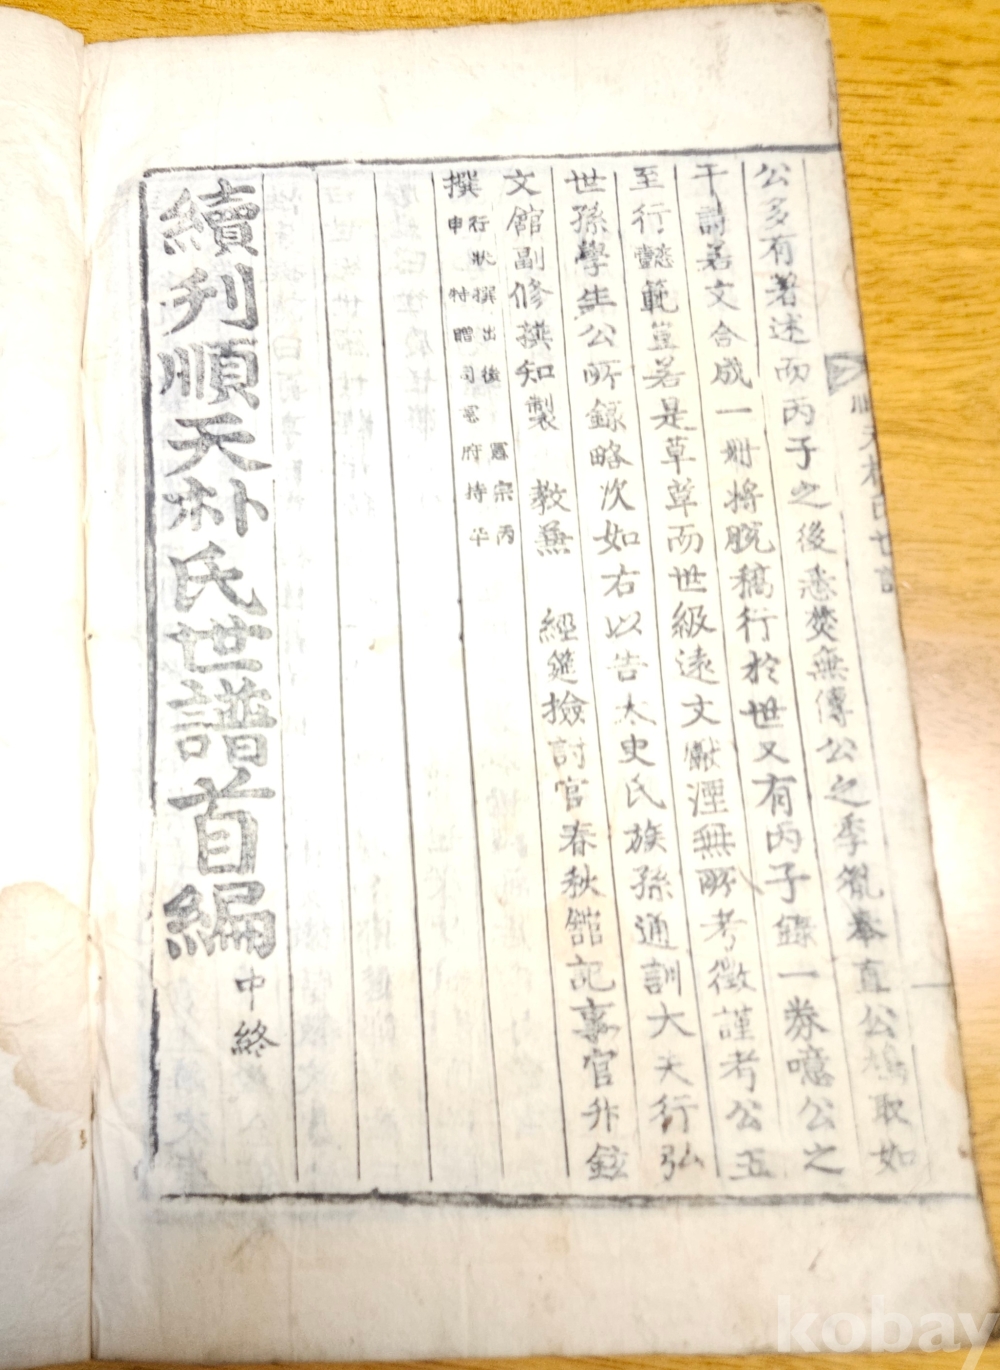 順天朴氏世譜
公多有著述而丙子之後悉焚無傳公之季胤奉直公鳩取如
干詩若文合成一冊將脫稿行於世又有丙子錄一券噫公之
至行懿範豈若是草草而世級遠文獻湮無所考徵謹考公五
世孫學生公所錄略次如右以告太史氏族孫通訓大夫行弘
文館副修撰知製 教兼 經筵檢討官春秋館記事官升鉉
撰
行狀撰出後 憲宗丙
申 特贈司憲府持平
續刊順天朴氏世譜首編 中終
kobay